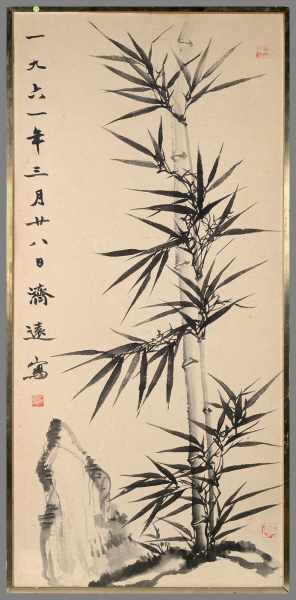 一九六一年三月廿八日濟遠寫